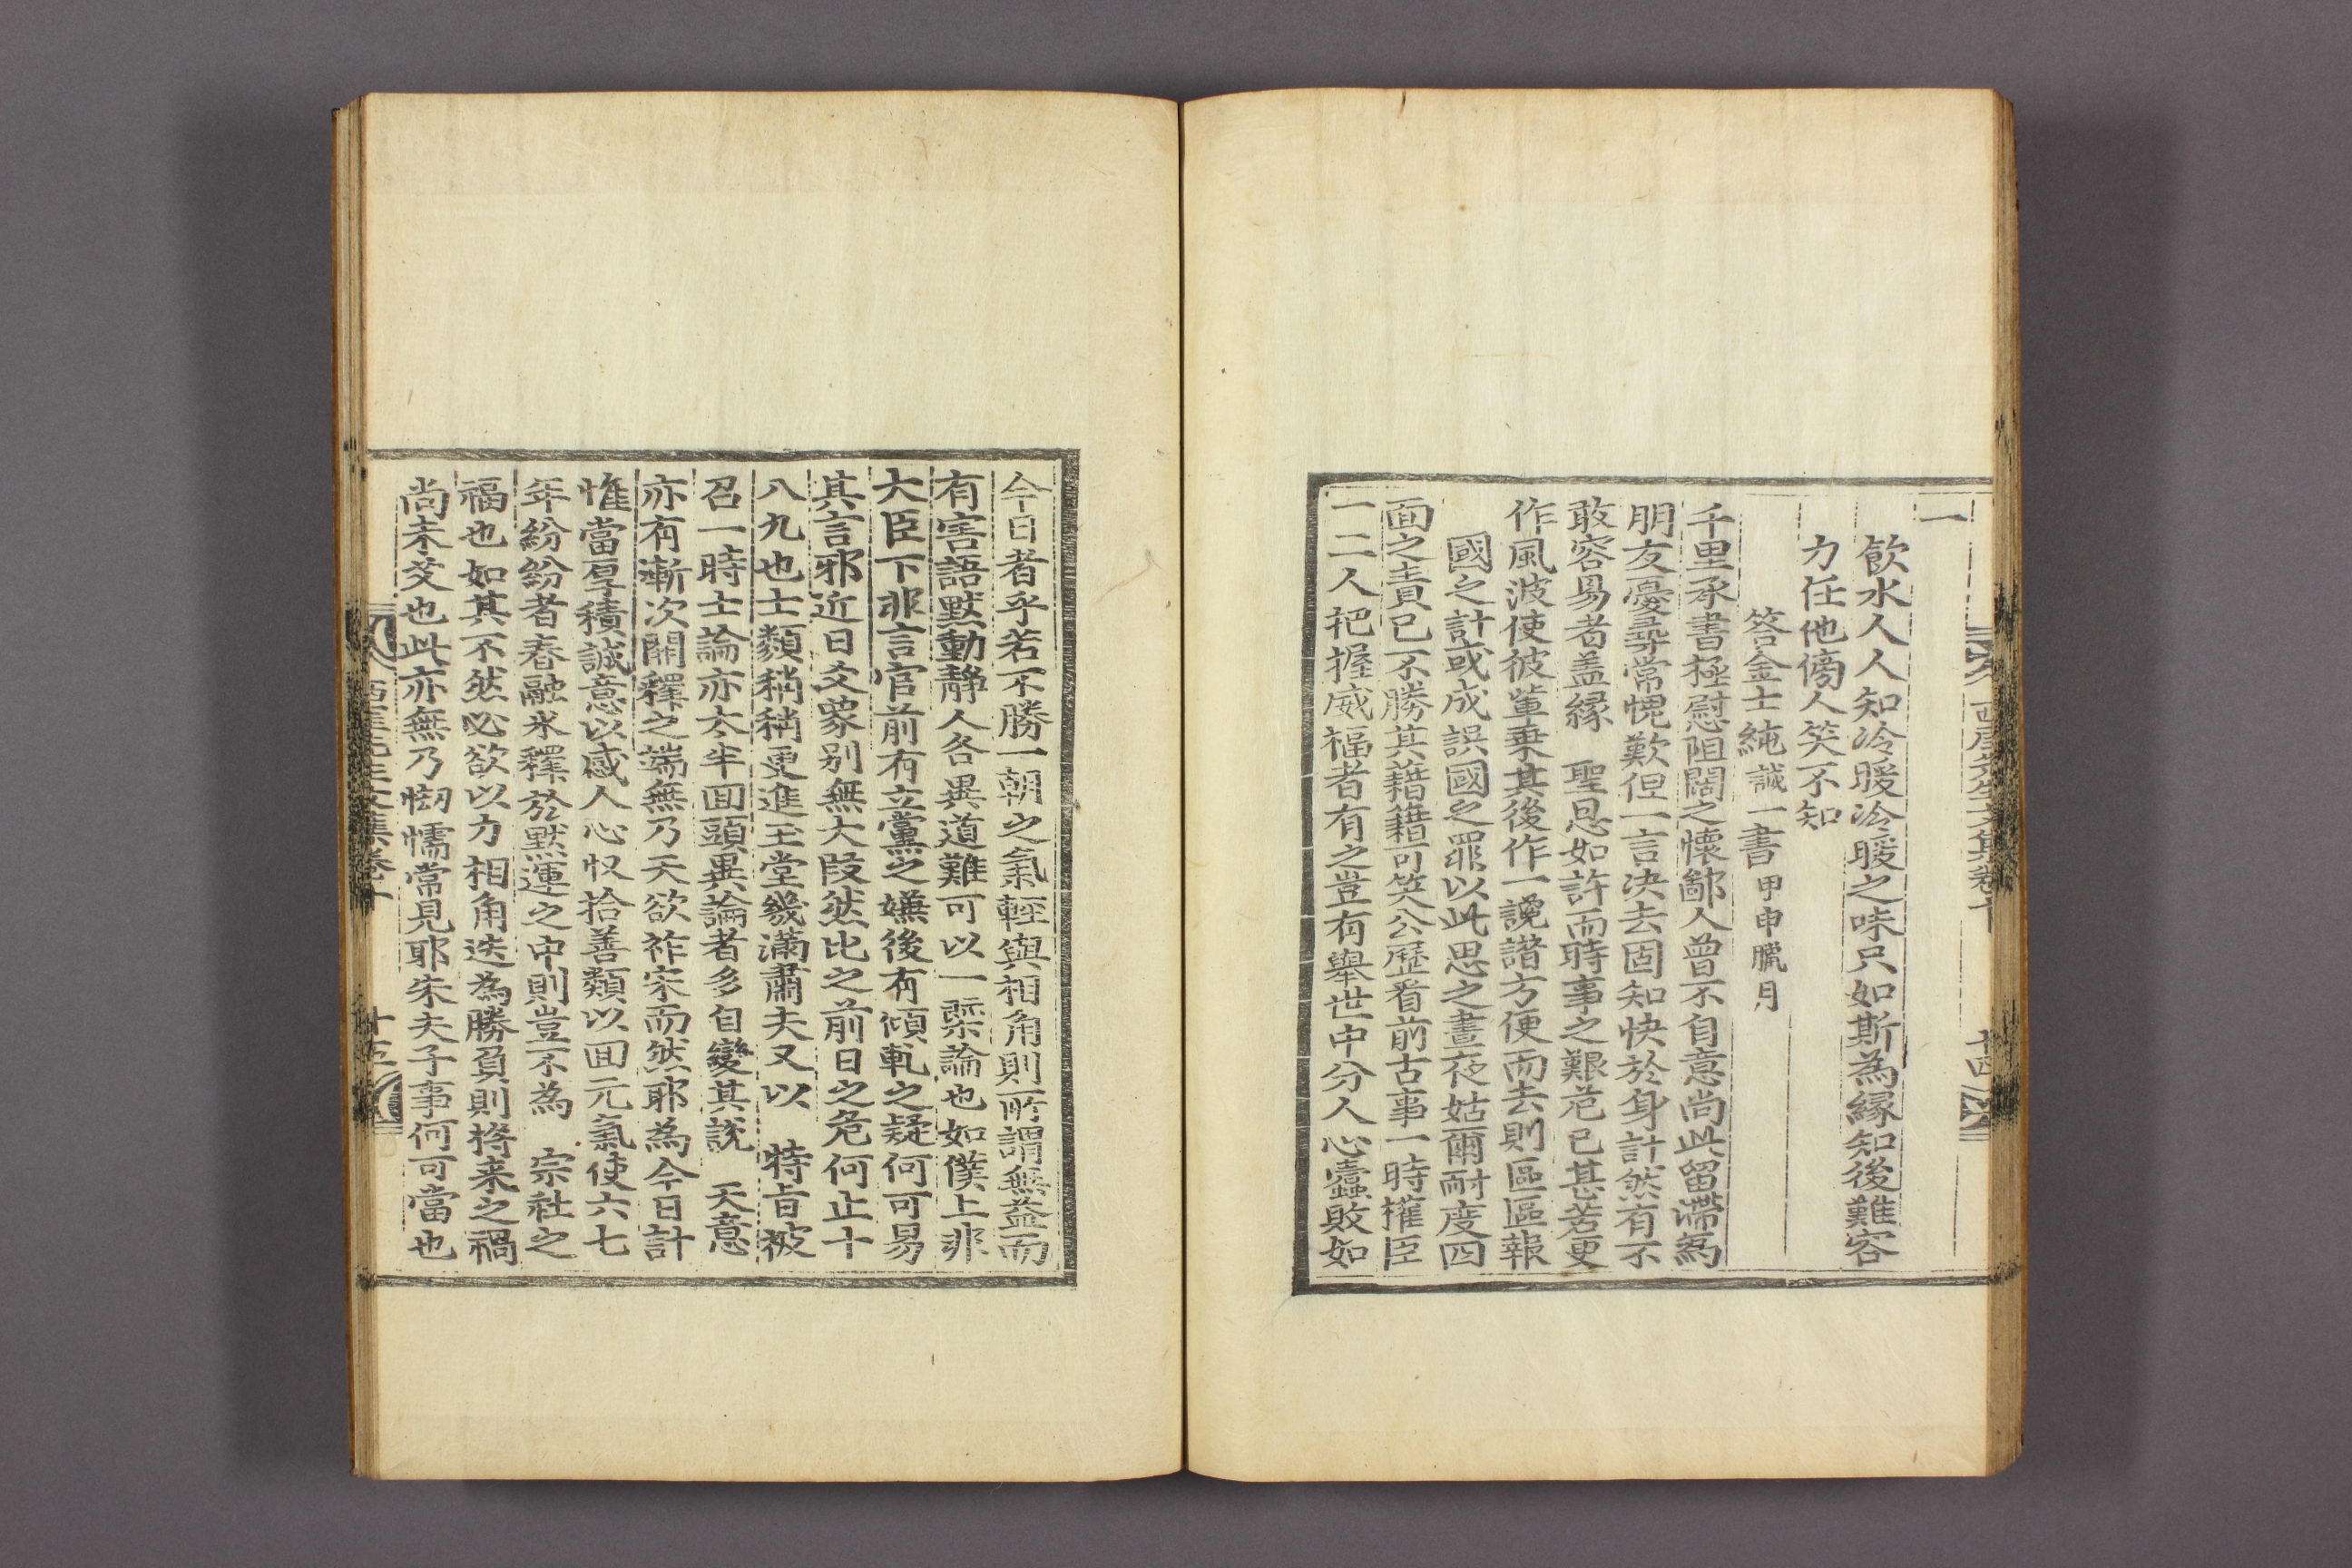 西厓先生文集卷十
十四
一
飲水人人知冷暖冷暖之味只如斯為緣知後難容
力任他傍人笑不知
答金士純誠一書甲申臘月
千里承書極慰阻闊之懷鄙人曾不自意尚此留滯為
朋友憂尋常愧歎但一言決去固知快於身計然有不
敢容易者盖緣 聖恩如許而時事之艱危已甚苦更
作風波使彼輩乗其後作一讒譖方便而去則區區報
國之計或成誤國之罪以此思之晝夜姑爾耐度四
面之責已不勝其藉藉可笑公歷看前古事一時權臣
一二人把握威福者有之豈有舉世中分人心蠹敗如
今日者乎若不勝一朝之氣輕與相角則所謂無益而
有害語默動靜人各異道難可以一槩論也如僕上非
大臣下非言官前有立黨之嫌後有傾軋之疑何可易
其言邪近日爻象别無大段然比之前日之危何止十
八九也士類稍稍更進玉堂幾滿肅夫又以 特旨被
召一時士論亦太半回頭異論者多自變其說 天意
亦有漸次開釋之端無乃天欲祚宋而然耶為今日計
惟當厚積誠意以感人心収拾善類以回元氣使六七
年紛紛者春融氷釋於默運之中則豈不為 宗社之
福也如其不然必欲以力相角迭為勝負則將来之禍
尚未艾也此亦無乃㥘懦常見耶朱夫子事何可當也
西厓先生文集卷十
十五